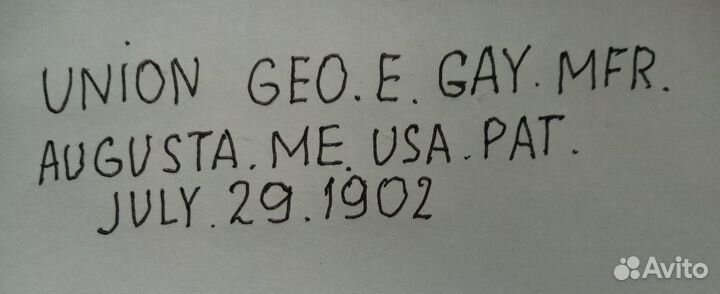 UNION GEO. E. GAY. MFR.
AUGUSTA. ME. USA. PAT.
JULY. 29. 1902
Avito